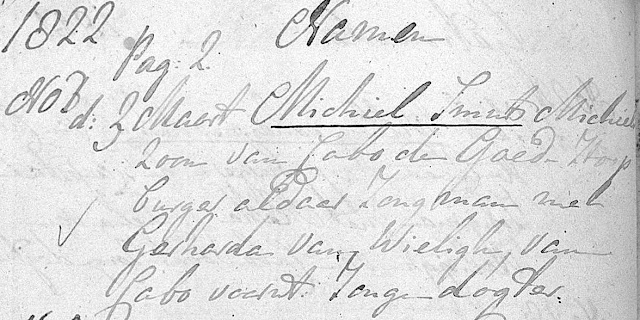 1822 Namen
Pag: 2
No 8 d: 3 Maart Michiel Smuts Michiel
Zoon van Cabo de Goede Hoop
burger aldaar Jongman met
Gerharda van Wieligh, van
Cabo voornt. Jonge dogter.